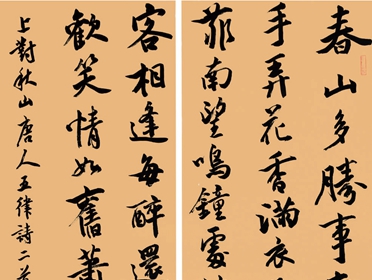 春山多勝事
手弄花香滿衣
菲南望鳴鐘處
客相逢每醉還
歡笑情如舊蕭
上對秋山唐人五律詩二首